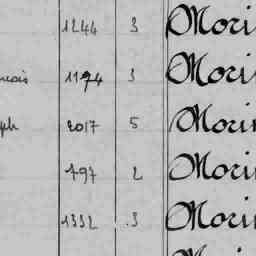 1244 3 Mori
ncois 1194 3 Mori
ph 2017 5 Morin
497 2 Morin
1332 3 Morin